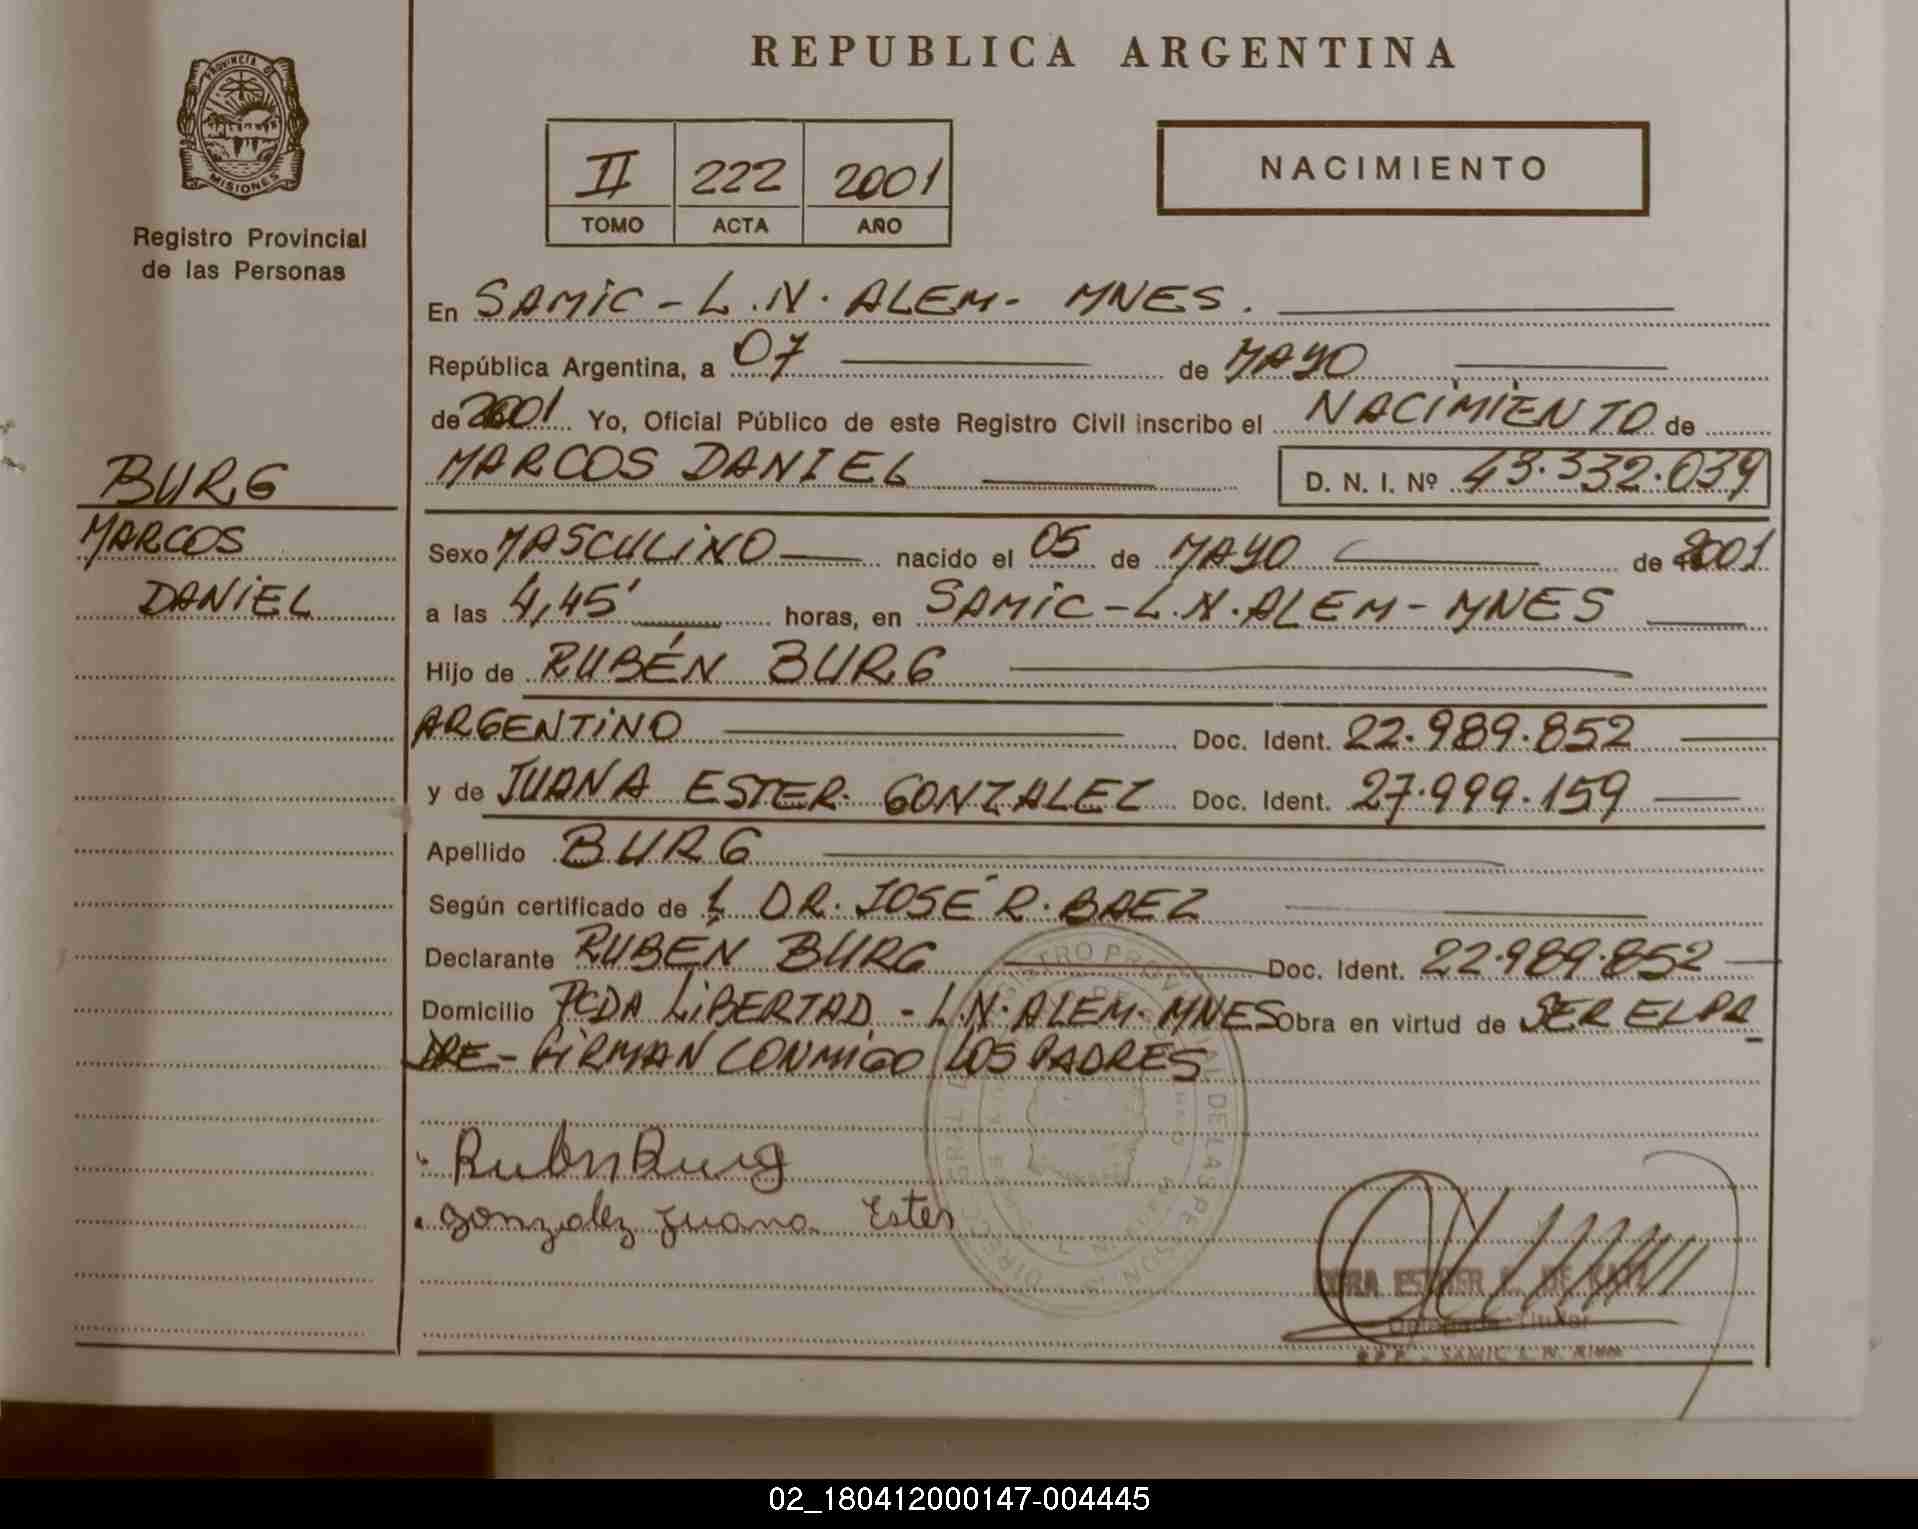 REPUBLICA ARGENTINA
PROVINCIA DE
MISIONES
Registro Provincial
de las Personas
II 222 2001
TOMO ACTA AÑO
NACIMIENTO
En SAMiC - L.N. ALEM - MNES.
República Argentina, a 07 de MAYO
de 2001 Yo, Oficial Público de este Registro Civil inscribo el NACiMiENTO de
MARCOS DANIEL D. N. I. Nº 43.332.039
BURG
MARCOS
DANiEL
Sexo MASCULiNO nacido el 05 de MAYO de 2001
a las 4,45' horas, en SAMiC - L.N. ALEM - MNES
Hijo de RUBÉN BURG
ARGENTiNO Doc. Ident. 22.989.852
y de JUANA ESTER GONZALEZ Doc. Ident. 27.999.159
Apellido BURG
Según certificado de DR. JOSÉ R. BAEZ
Declarante RUBÉN BURG Doc. Ident. 22.989.852
Domicilio PCDA LiBERTAD - L.N. ALEM - MNES Obra en virtud de SER EL PA
DRE - FiRMAN CONMiGO LOS PADRES
Ruben Burg
gonzalez juana Ester
DE KATZ
Delegada Titular
R.P.P. - SAMIC L. N. Alem
02_180412000147-004445